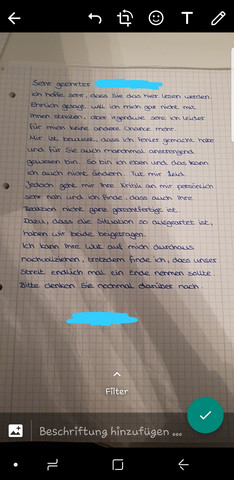 T
Sehr geehrter
ich hoffe sehr, dass Sie das hier lesen werden.
Ehrlich gesagt will ich mich gar nicht mit
Ihnen streiten, aber irgendwie sehe ich leider
für mich keine andere Chance mehr.
Mir ist bewusst, dass ich Fehler gemacht habe
und für Sie auch manchmal anstrengend
gewesen bin. So bin ich eben und das kann
ich auch nicht ändern. Tut mir Leid.
Jedoch geht mir Ihre Kritik an mir persönlich
sehr nah und ich finde, dass auch Ihre
Reaktion nicht ganz gerechtfertigt ist.
Dazu, dass die Situation so ausgeartet ist
haben wir beide beigetragen.
Ich kann Ihre Wut auf mich durchaus
nachvollziehen, trotzdem finde ich, dass unser
Streit endlich mal ein Ende nehmen sollte.
Bitte denken Sie nochmal darüber nach.
Filter
Beschriftung hinzufügen ...